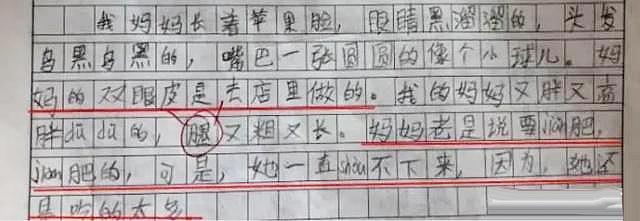 我妈妈长着苹果脸，眼睛黑溜溜的，头发
乌黑乌黑的，嘴巴一张圆圆的像个小球儿。妈
妈的双眼皮是去店里做的。我的妈妈又胖又高
胖dūdū的，腿又粗又长。妈妈老是说要jiǎn肥，
jiǎn肥的，可是，她一直shòu不下来，因为，她还
是吃的太多